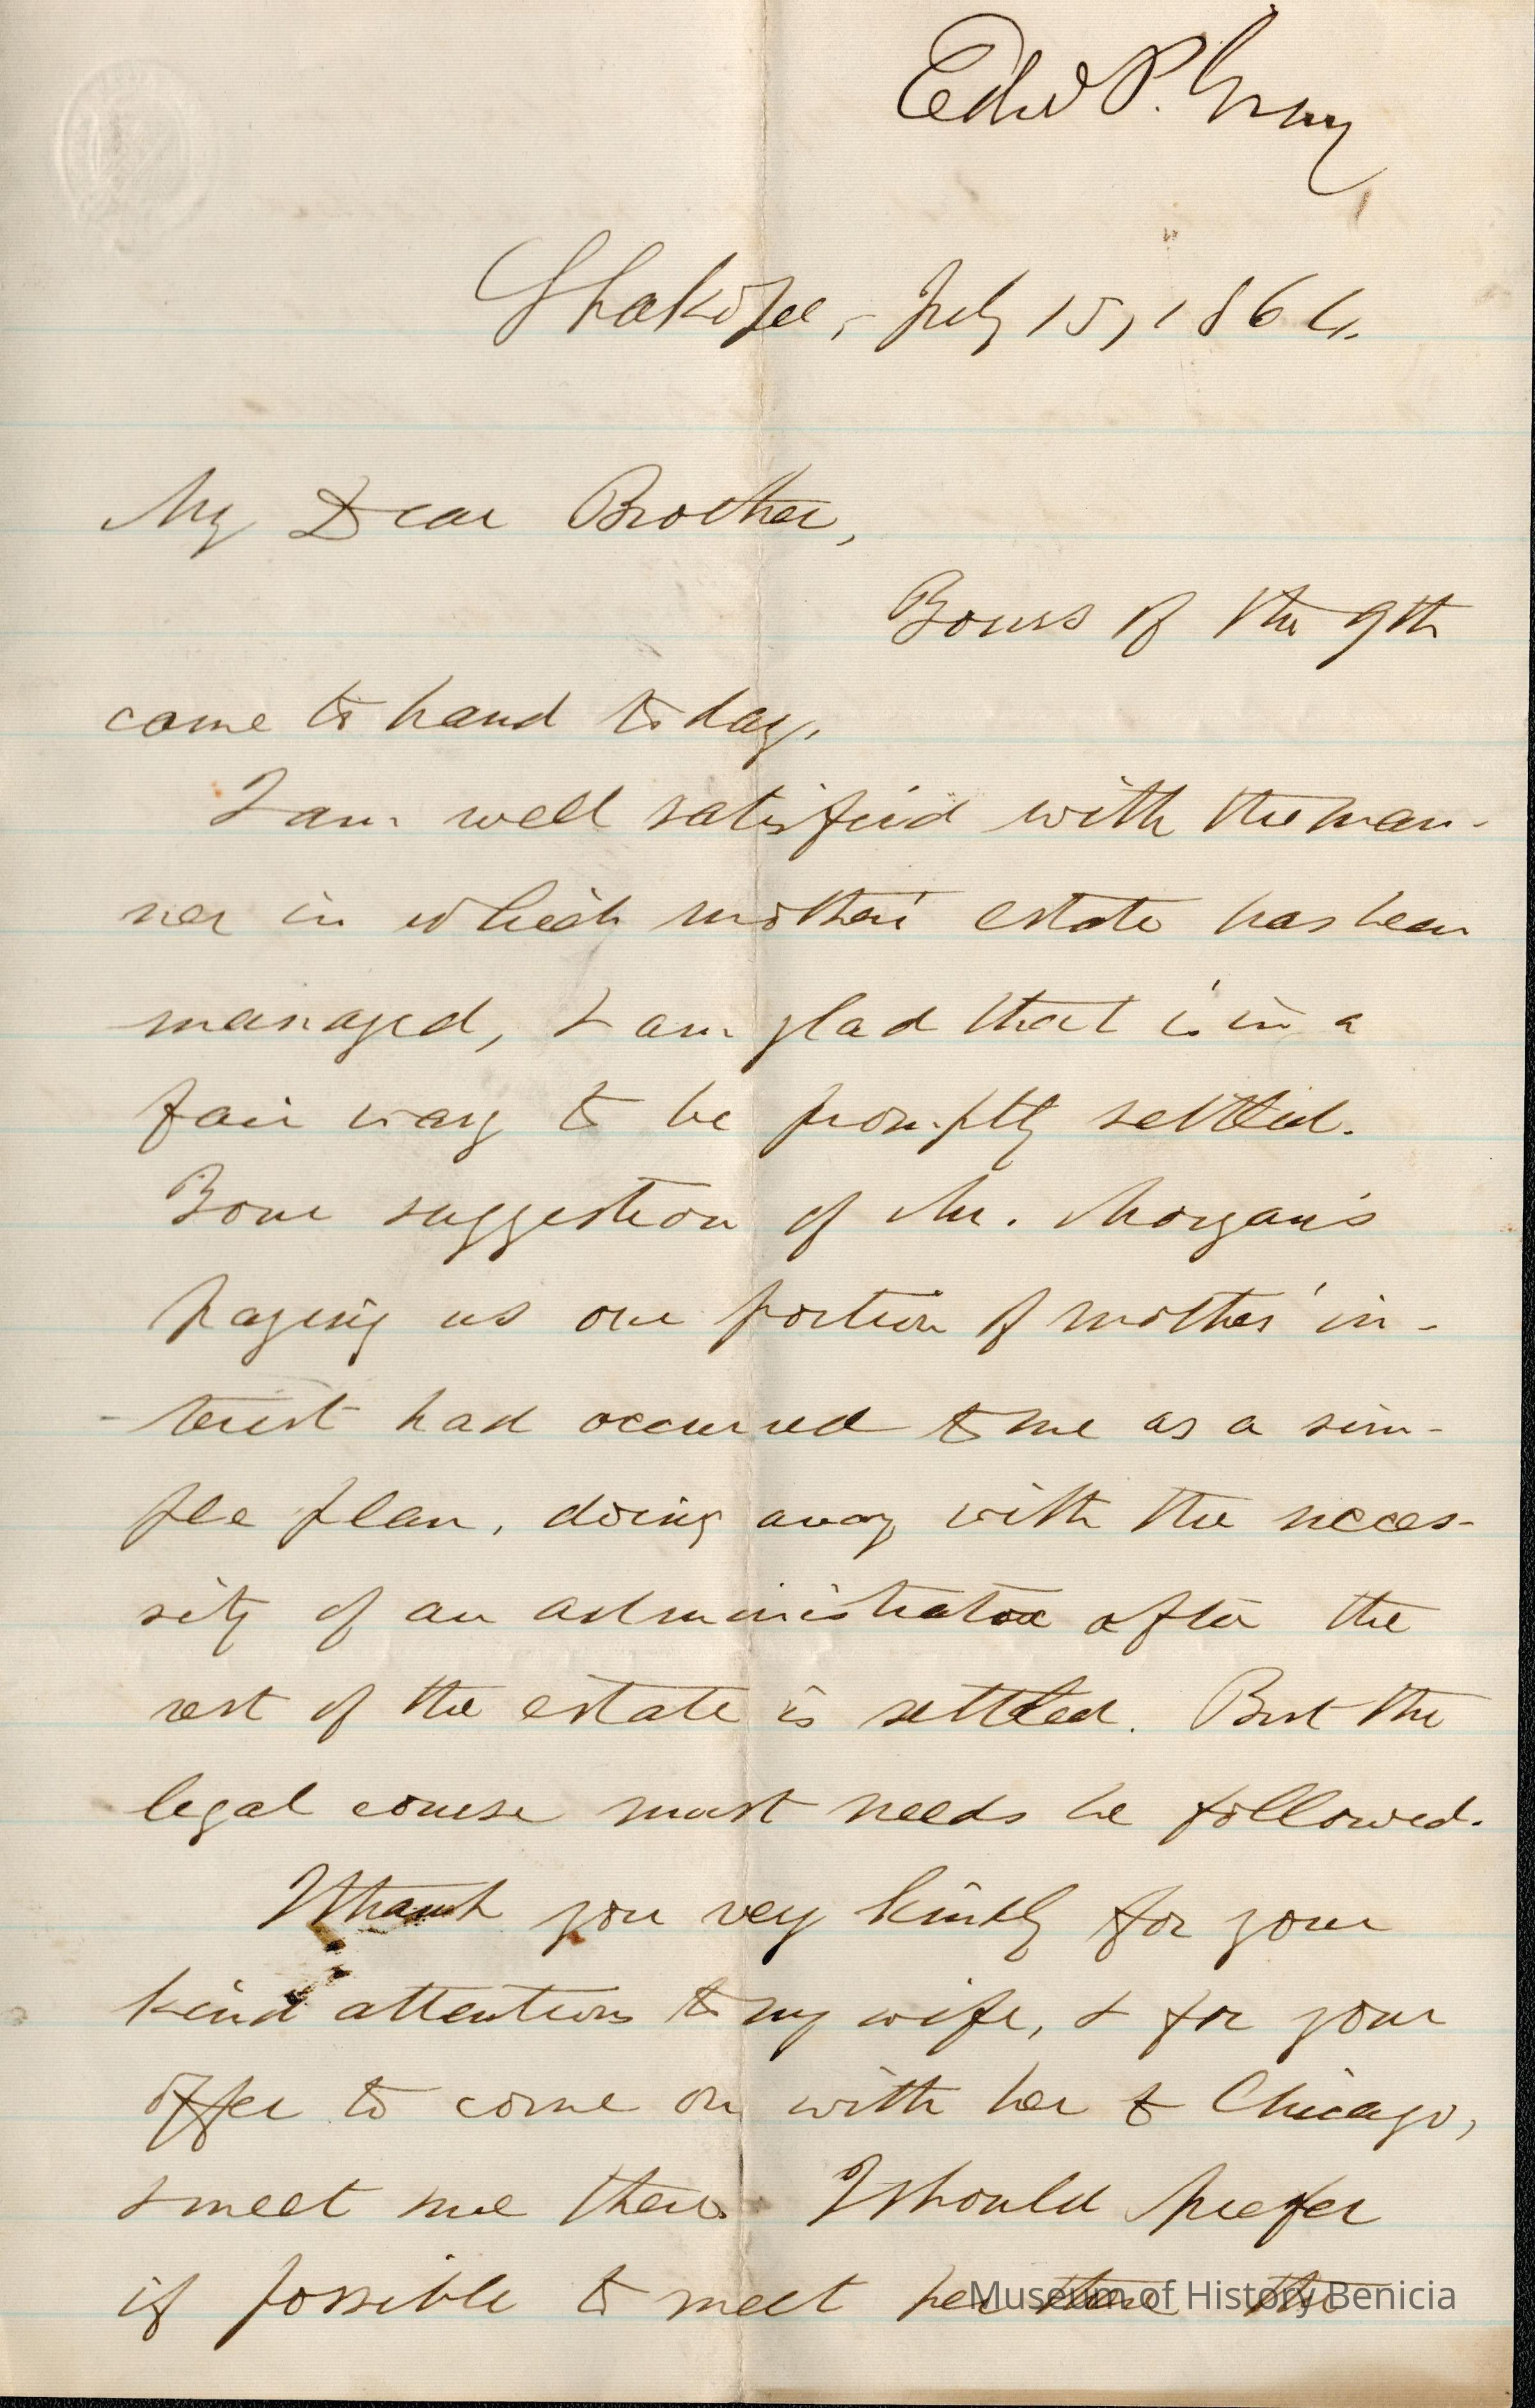 Edwd P. Gray
Shakopee, July 15, 1864.
My Dear Brother,
Yours of the 9th
came to hand to day.
I am well satisfied with the man-
ner in which mother's estate has been
managed, & am glad that is in a
fair way to be promptly settled.
Your suggestion of Mr. Morgan's
paying us our portion of mother's in-
-terest had occurred to me as a sim-
ple plan, doing away with the neces-
sity of an administrator after the
rest of the estate is settled. But the
legal course must needs be followed.
I thank you very kindly for your
kind attentions to my wife, & for your
offer to come on with her to Chicago,
& meet me there. I should prefer
if possible to meet her there the
Museum of History Benicia